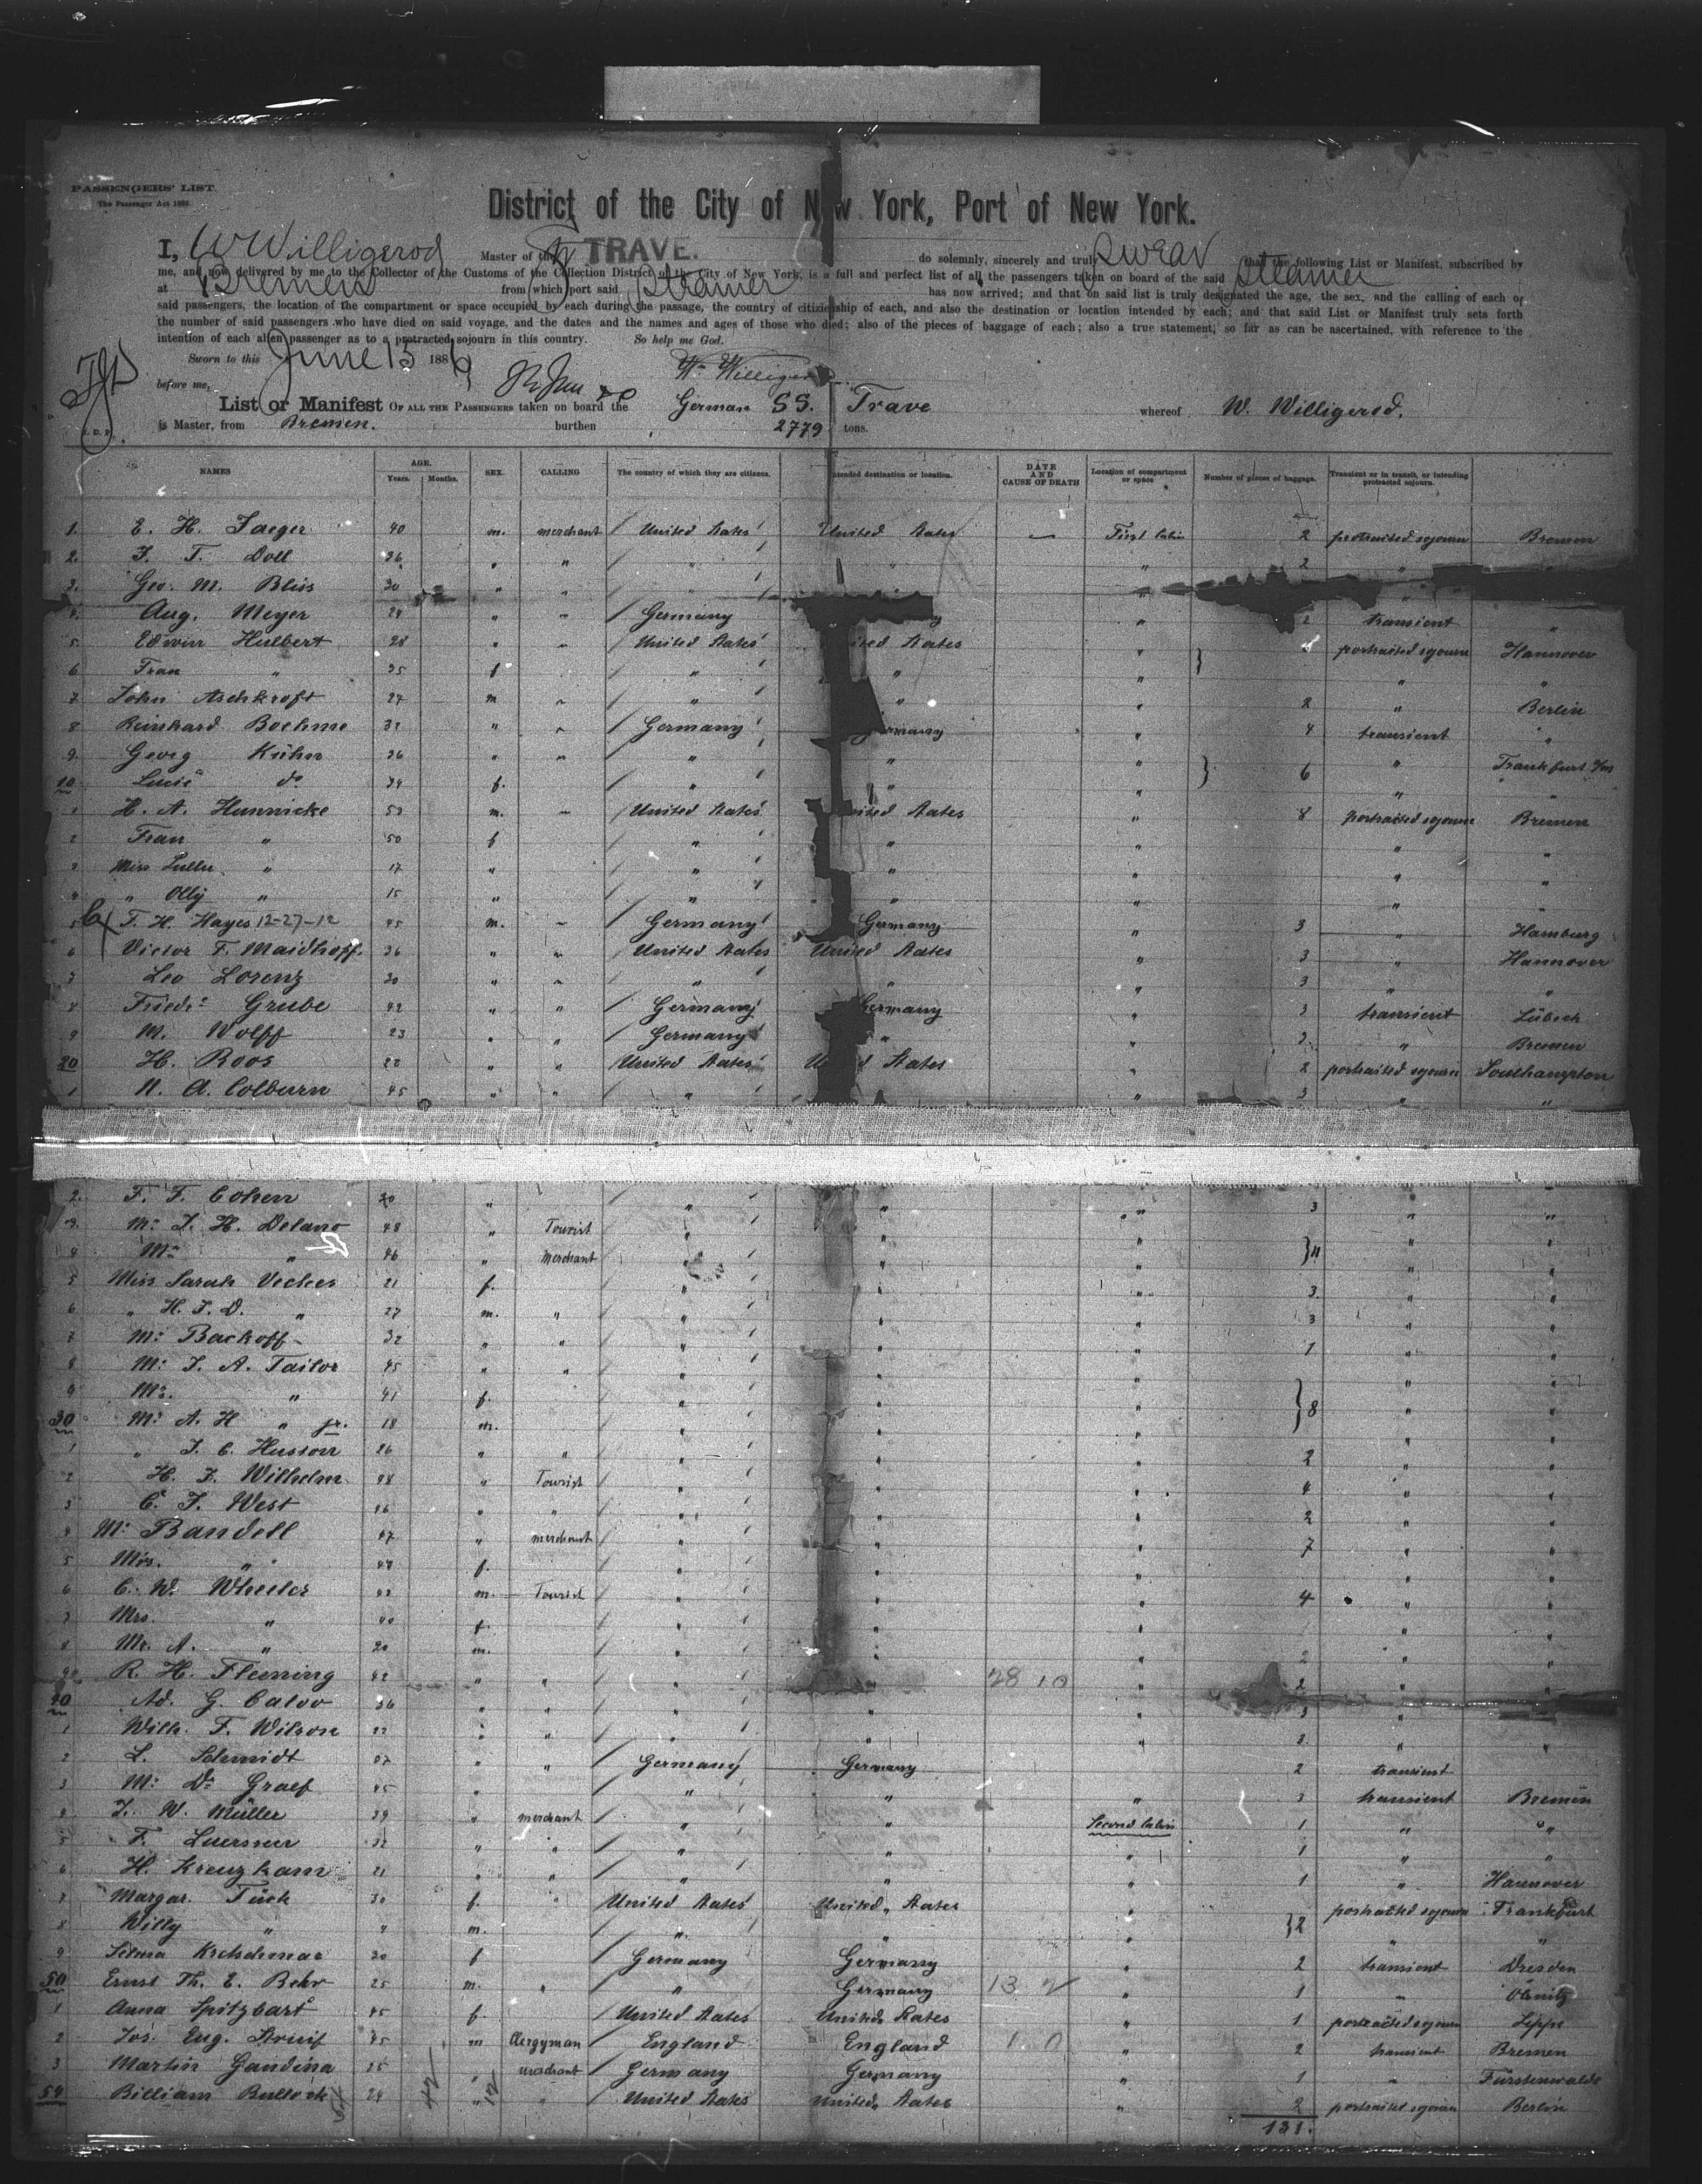 PASSENGERS' LIST.
The Passenger Act 1882.
District of the City of New York, Port of New York.
I, W Willigerod Master of the TRAVE. do solemnly, sincerely and truly Swear that the following List or Manifest, subscribed by
me, and now delivered by me to the Collector of the Customs of the Collection District of the City of New York, is a full and perfect list of all the passengers taken on board of the said Steamer
at Bremen from which port said Steamer has now arrived; and that on said list is truly designated the age, the sex, and the calling of each of
said passengers, the location of the compartment or space occupied by each during the passage, the country of citizenship of each, and also the destination or location intended by each; and that said List or Manifest truly sets forth
the number of said passengers who have died on said voyage, and the dates and the names and ages of those who died; also of the pieces of baggage of each; also a true statement, so far as can be ascertained, with reference to the
intention of each alien passenger as to a protracted sojourn in this country. So help me God.
Sworn to this June 15 188
before me, W. Willigerod
List or Manifest OF ALL THE PASSENGERS taken on board the German SS. Trave whereof W. Willigerod.
is Master, from Bremen. burthen 2779 tons.
NAMES AGE. Years. Months. SEX. CALLING The country of which they are citizens. Intended destination or location. DATE AND CAUSE OF DEATH Location of compartment or space Number of pieces of baggage. Transient or in transit, or intending protracted sojourn.
1. E. H. Jaeger 40 m. merchant United States United States First Cabin 2 protracted sojourn Bremen
2. J. T. Doll 36 " " " " " 2 "
3. Geo. M. Bliss 30 " " " " " "
4. Aug. Meyer 29 " " Germany " 2 transient "
5 Edwin Hulbert 28 " " United States United States " protracted sojourn Hannover
6 Frau " 35 f " " " " "
7 John Aschkroft 27 m " " " " 2 " Berlin
8 Reinhard Boehme 32 " " Germany Germany " 4 transient "
9. Georg Kühn 36 " " " " " 6 " Frankfurt a/m
10 Lucie do 34 f. " " " " "
1 H. A. Hunnicke 53 m. " United States United States " 8 protracted sojourn Bremen
2 Frau " 50 f " " " " "
3 Miss Lullu " 17 " " " " " "
4 " Olly " 15 " " " " " "
5 F. H. Hayes 12-27-12 45 m. " Germany Germany " 3 " Hamburg
6 Victor F. Maidhoff. 36 " " United States United States " 3 " Hannover
7 Leo Lorenz 30 " " " " " 3 " "
8 Friedr. Grube 42 " " Germany Germany " 3 transient Lübeck
9 M. Wolff 23 " " Germany " " 2. " Bremen
20 H. Roos 22 " " United States United States " 2 protracted sojourn Southampton
1 N. A. Colburn 45 " " " " 3 " "
2. F. F. Cohen 30 " " " " 3 " "
3. Mr. J. H. Delano 48 " Tourist " " " " "
4 Mrs " 46 " Merchant " " " 11 " "
5 Miss Sarah 21 f. " " " 3. " "
6 " H. J. D. " 27 m. " " " " 3 " "
7 Mr. Backoff 32 " " " " " 1 " "
8 Mr. J. A. Tailor 45 " " " " " " "
9 Mrs. " 41 f. " " " 8 " "
30 Mr. A. H " jr. 18 m. " " " " "
1 " J. C. Husson 26 " " " " " 2 " "
2 H. J. Wilhelm 48 " Tourist " " " 4 " "
3 C. J. West 26 " " " " " 2 " "
4 Mr. Bandell 47 " merchant " " " 7 " "
5 Mrs. " 44 f. " " " " "
6 C. W. Wheeler 42 m. Tourist " " " 4 " "
7 Mrs. " 40 f. " " " " "
8 Mr. A. " 20 m. " " " 2 " "
9 R. H. Fleming 42 " " " " 28 10 " 2 " "
40 Ad. G. Calvo 36 " " " " " 3 " "
1 Wilh. F. Wilson 22 " " " " " 2. " "
2 L. Schmidt 27 " " Germany Germany 2 transient
3 Mr. Dr. Graef 45 " " " " 3 transient Bremen
4 J. W. Müller 39 " merchant " " Second Cabin 1 " "
5 F. Luerssen 32 " " " " " 1 " "
6 H. Kreuzkam 21 " " " " " 1 " Hannover
7 Margar. Tück 30 f. " United States United States " 2 protracted sojourn Frankfurt
8 Willy " m. " " " " "
9 Selma Kretschmar 20 f Germany Germany " 2 transient Dresden
50 Ernst Th. E. Behr 25 m. " " Germany 13 2 " 1 "
1 Anna Spitzbart 45 f. United States United States " 1 protracted sojourn Lippe
2 Jos. Eug. 45 m Clergyman England England 1 0 " 2 transient Bremen
3 Martin Gandina 25 " merchant Germany Germany " 1 " Fürstenwalde
54 William Bullock 24 " " United States United States " 2 protracted sojourn Berlin
42 12
131.